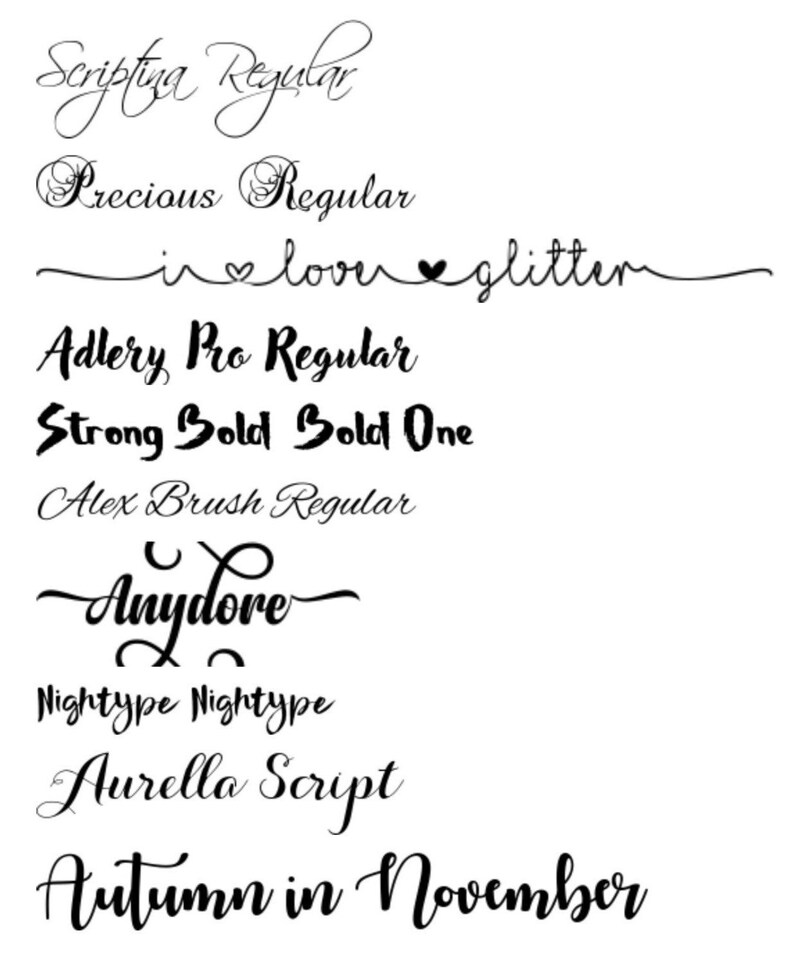 Scriptina Regular
Precious Regular
i love glitter
Adlery Pro Regular
Strong Bold Bold One
Alex Brush Regular
Anydore
Nightype Nightype
Aurella Script
Autumn in November